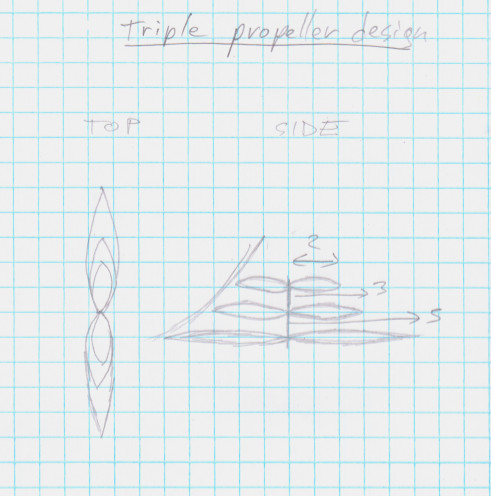 Triple propeller design
TOP
SIDE
2
3
5